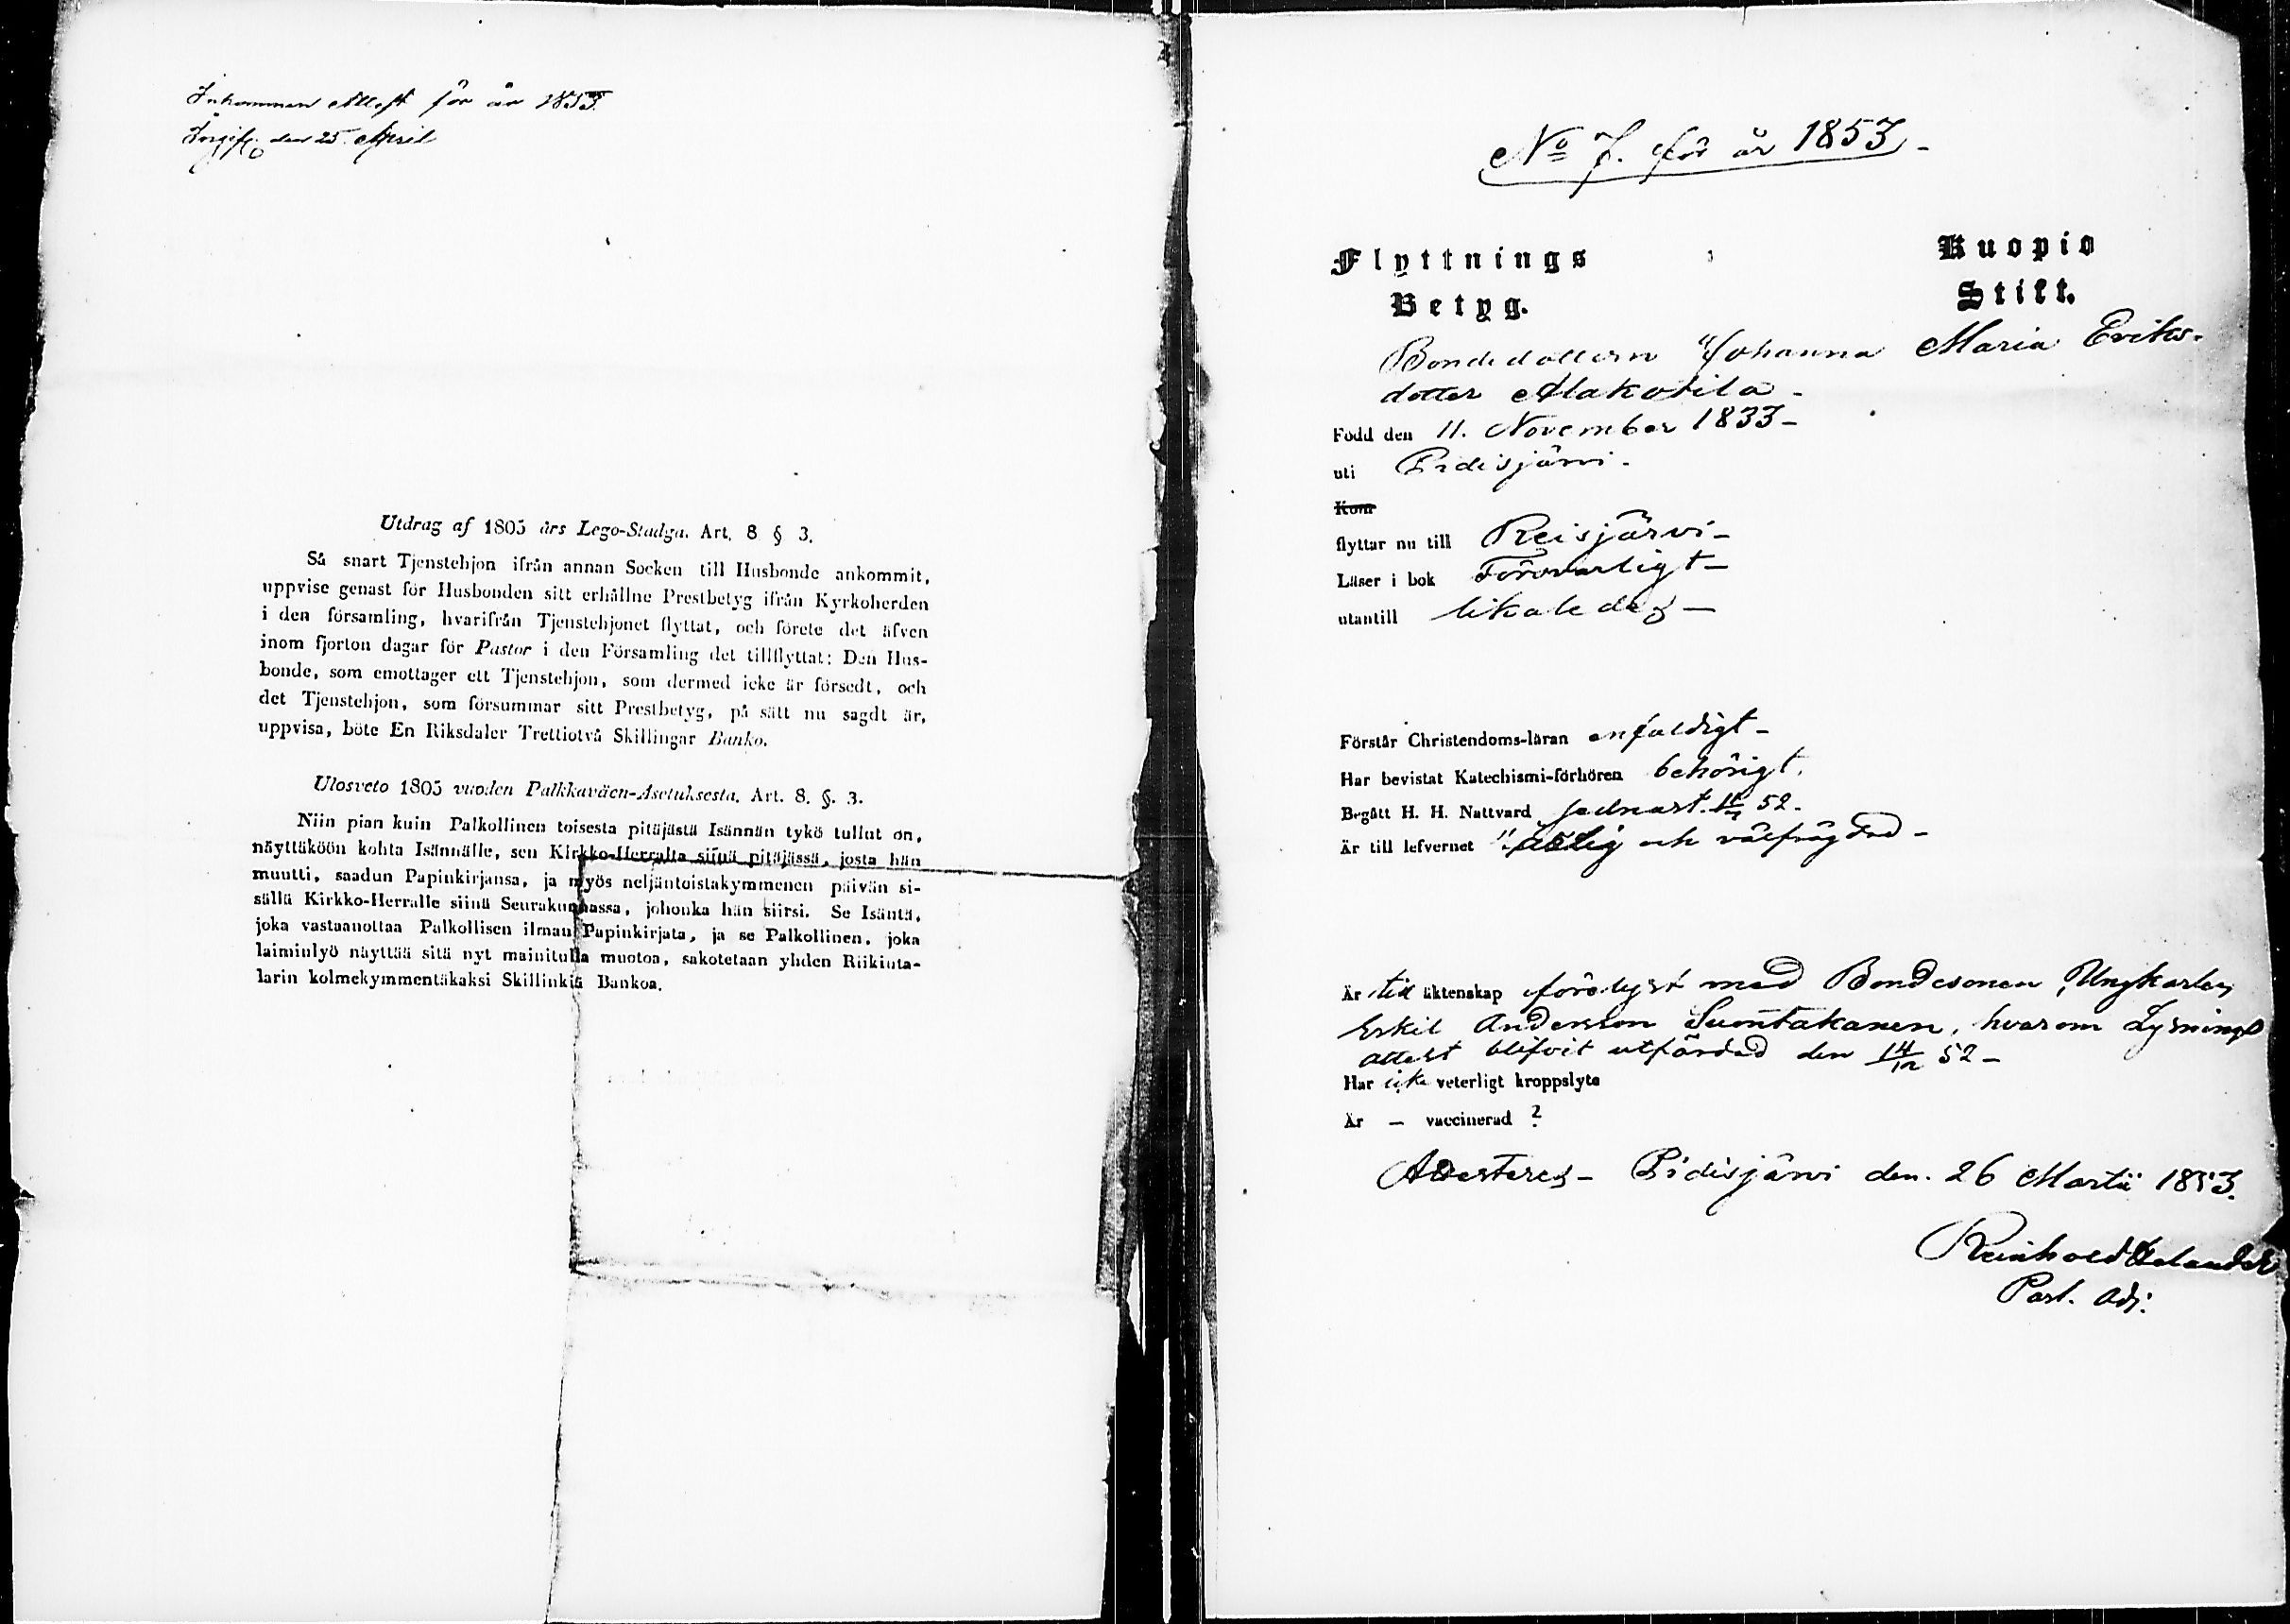 Inkommen attest för år 1853.
den 25 April
Utdrag af 1805 års Lego-Stadga. Art. 8 § 3.
Så snart Tjenstehjon ifrån annan Socken till Husbonde ankommit,
uppvise genast för Husbonden sitt erhållne Prestbetyg ifrån Kyrkoherden
i den församling, hvarifrån Tjenstehjonet flyttat, och förete det äfven
inom fjorton dagar för Pastor i den Församling det tillflyttat: Den Hus-
bonde, som emottager ett Tjenstehjon, som dermed icke är försedt, och
det Tjenstehjon, som försummar sitt Prestbetyg, på sätt nu sagdt är,
uppvisa, böte En Riksdaler Trettiotvå Skillingar Banko.
Ulosveto 1805 vuoden Palkkaväen-Asetuksesta. Art. 8. §. 3.
Niin pian kuin Palkollinen toisesta pitäjästä Isännän tykö tullut on,
näyttäköön kohta Isännälle, sen Kirkko-Herralta siinä pitäjässä, josta hän
muutti, saadun Papinkirjansa, ja myös neljäntoistakymmenen päivän si-
sällä Kirkko-Herralle siinä Seurakunnassa, johonka hän siirsi. Se Isäntä,
joka vastaanottaa Palkollisen ilman Papinkirjata, ja se Palkollinen, joka
laiminlyö näyttää sitä nyt mainitulla muotoa, sakotetaan yhden Riikinta-
larin kolmekymmentäkaksi Skillinkiä Bankoa.
No 7. för år 1853-
Flyttnings Kuopio
Betyg. Stift.
Bondedottern Johanna Maria Eriks-
dotter Alakotila-
Född den 11. November 1833-
uti Pidisjärvi-
Kom
flyttar nu till Reisjärvi-
Läser i bok Försvarligt-
utantill likaledes-
Förstår Christendoms-läran enfaldigt-
Har bevistat Katechismi-förhören behörigt.
Begått H. H. Nattvard sednast. 52-
Är till lefvernet ärlig och välfrägdad-
Är till äktenskap förelyst med Bondesonen, Ungkarlen
Eskil Andersson Suontakanen, hvarom Lysnings
attest blifvit utfärdad den 14/12 52-
Har icke veterligt kroppslyte
Är - vaccinerad ?
Attesteres- Pidisjärvi den. 26 Martii 1853.
Reinhold
Past. Adj.